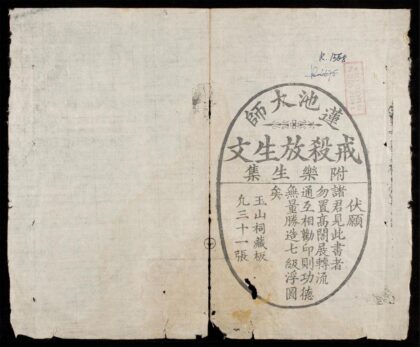 R. 1558
蓮池大師
戒殺放生文
附樂生集
伏願
諸君見此書者
勿置高閣展轉流
通互相勸印則功德
無量勝造七級浮圖
矣
玉山祠藏板
九三十一張